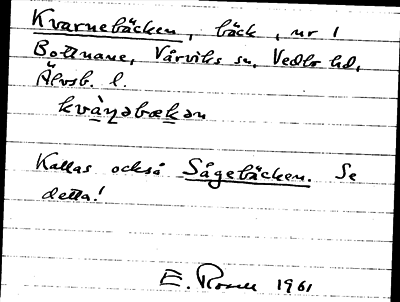 Kvarnebäcken, bäck, nr 1
Bottnane, Vårviks sn, Vedbo hd,
Älvsb. l.
kvàṇəbækən
Kallas också Sågebäcken. Se
detta!
E. Rosell 1961